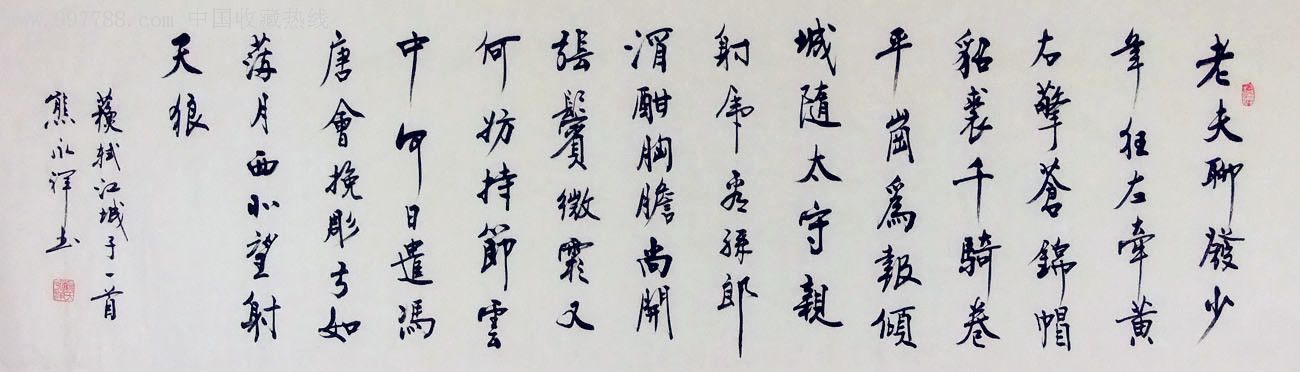 老夫聊發少
年狂左牽黃
右擎蒼錦帽
貂裘千騎卷
平崗爲報傾
城隨太守親
射虎看孫郎
酒酣胸膽尚開
張鬢微霜又
何妨持節雲
中何日遣馮
唐會挽彫弓如
滿月西北望射
天狼
蘇軾江城子一首
熊永祥书
www.997788.com 中国收藏热线